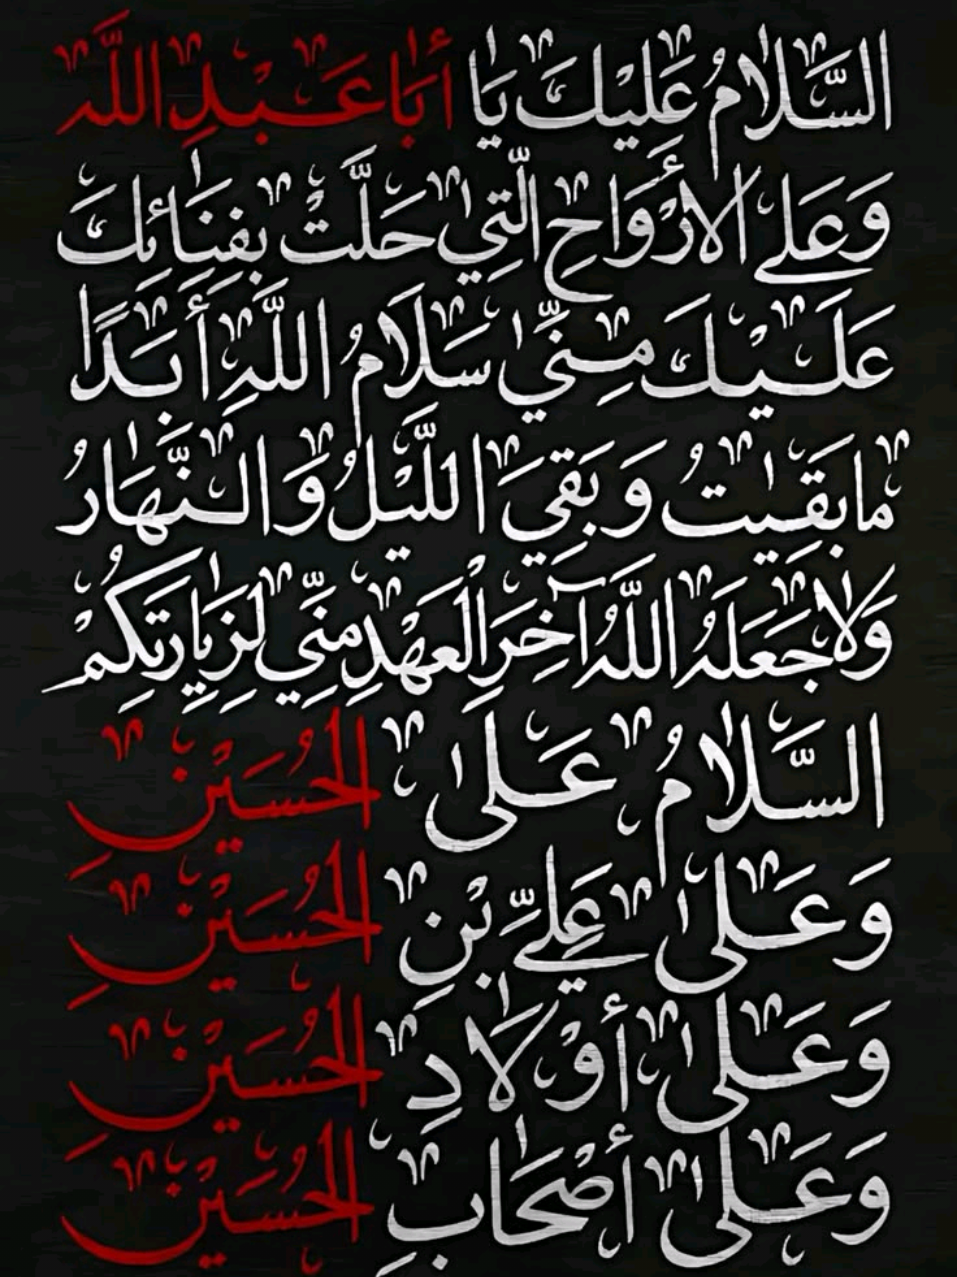 السَّلَامُ عَلَيْكَ يَا أَبَا عَبْدِ اللَّهِ
وَعَلَى الأَرْوَاحِ الَّتِي حَلَّتْ بِفِنَائِكَ
عَلَيْكَ مِنِّي سَلَامُ اللَّهِ أَبَدًا
مَا بَقِيتُ وَبَقِيَ اللَّيْلُ وَالنَّهَارُ
وَلَا جَعَلَهُ اللَّهُ آخِرَ الْعَهْدِ مِنِّي لِزِيَارَتِكُمْ
السَّلَامُ عَلَى الحُسَيْنِ
وَعَلَى عَلِيِّ بْنِ الحُسَيْنِ
وَعَلَى أَوْلَادِ الحُسَيْنِ
وَعَلَى أَصْحَابِ الحُسَيْنِ